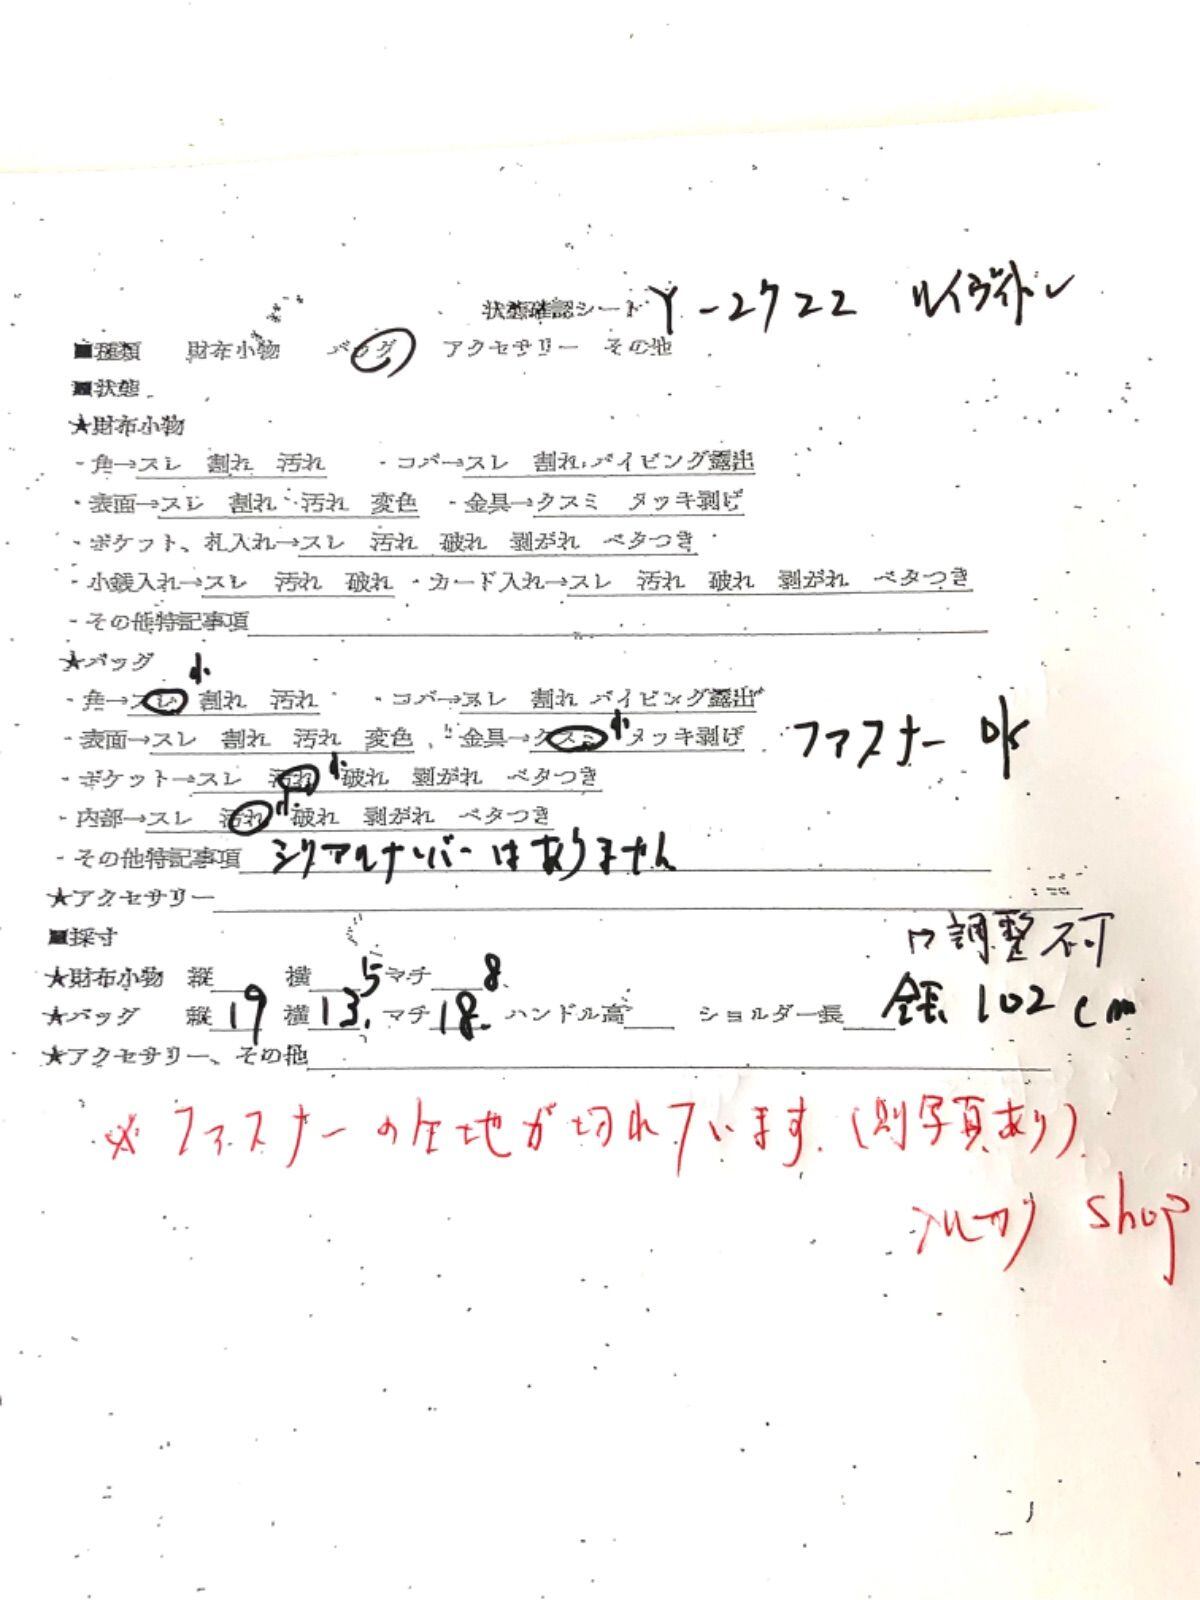 状態確認シート Y-2722 ルイヴィトン
■種類 財布小物 バッグ アクセサリー その他
■状態
★財布小物
・角→スレ 割れ 汚れ ・コバ→スレ 割れ パイピング露出
・表面→スレ 割れ 汚れ 変色 ・金具→クスミ メッキ剥げ
・ポケット、札入れ→スレ 汚れ 破れ 剥がれ ベタつき
・小銭入れ→スレ 汚れ 破れ ・カード入れ→スレ 汚れ 破れ 剥がれ ベタつき
・その他特記事項
★バッグ
小
・角→スレ 割れ 汚れ ・コバ→スレ 割れ パイピング露出
・表面→スレ 割れ 汚れ 変色 ・金具→クスミ 小 メッキ剥げ ファスナー ok
・ポケット→スレ 汚れ 小 破れ 剥がれ ベタつき
・内部→スレ 汚れ 小 破れ 剥がれ ベタつき
・その他特記事項 シリアルナンバーはありません
★アクセサリー
■採寸
調整不可
★財布小物 縦 横 マチ
★バッグ 縦 19 横 13.5 マチ 18.8 ハンドル高 ショルダー長 全長 102cm
★アクセサリー、その他
※ファスナーの生地が切れています。(別写真あり)
shop